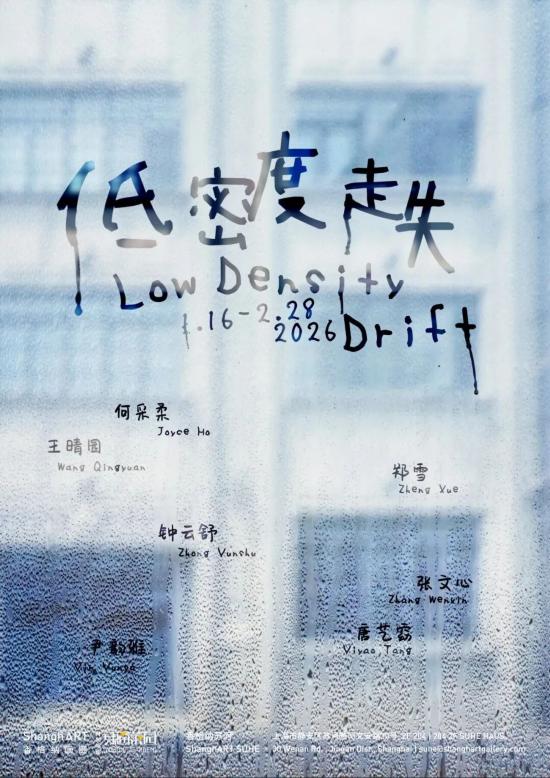 低密度走失
Low Density
1.16-2.28
2026 Drift
何采柔
Joyce Ho
王晴园
Wang Qingyuan
郑雪
Zheng Xue
钟云舒
Zhong Yunshu
张文心
Zhang Wenxin
唐艺窈
Yiyao Tang
尹韵雅
Yin Yunya
ShanghART
香格纳画廊
ShanghART SUHE
上海市静安区
204, 2F SUHE HAUS
30 Wenan Rd., Jingan Dist., Shanghai | suhe@shanghartgallery.com